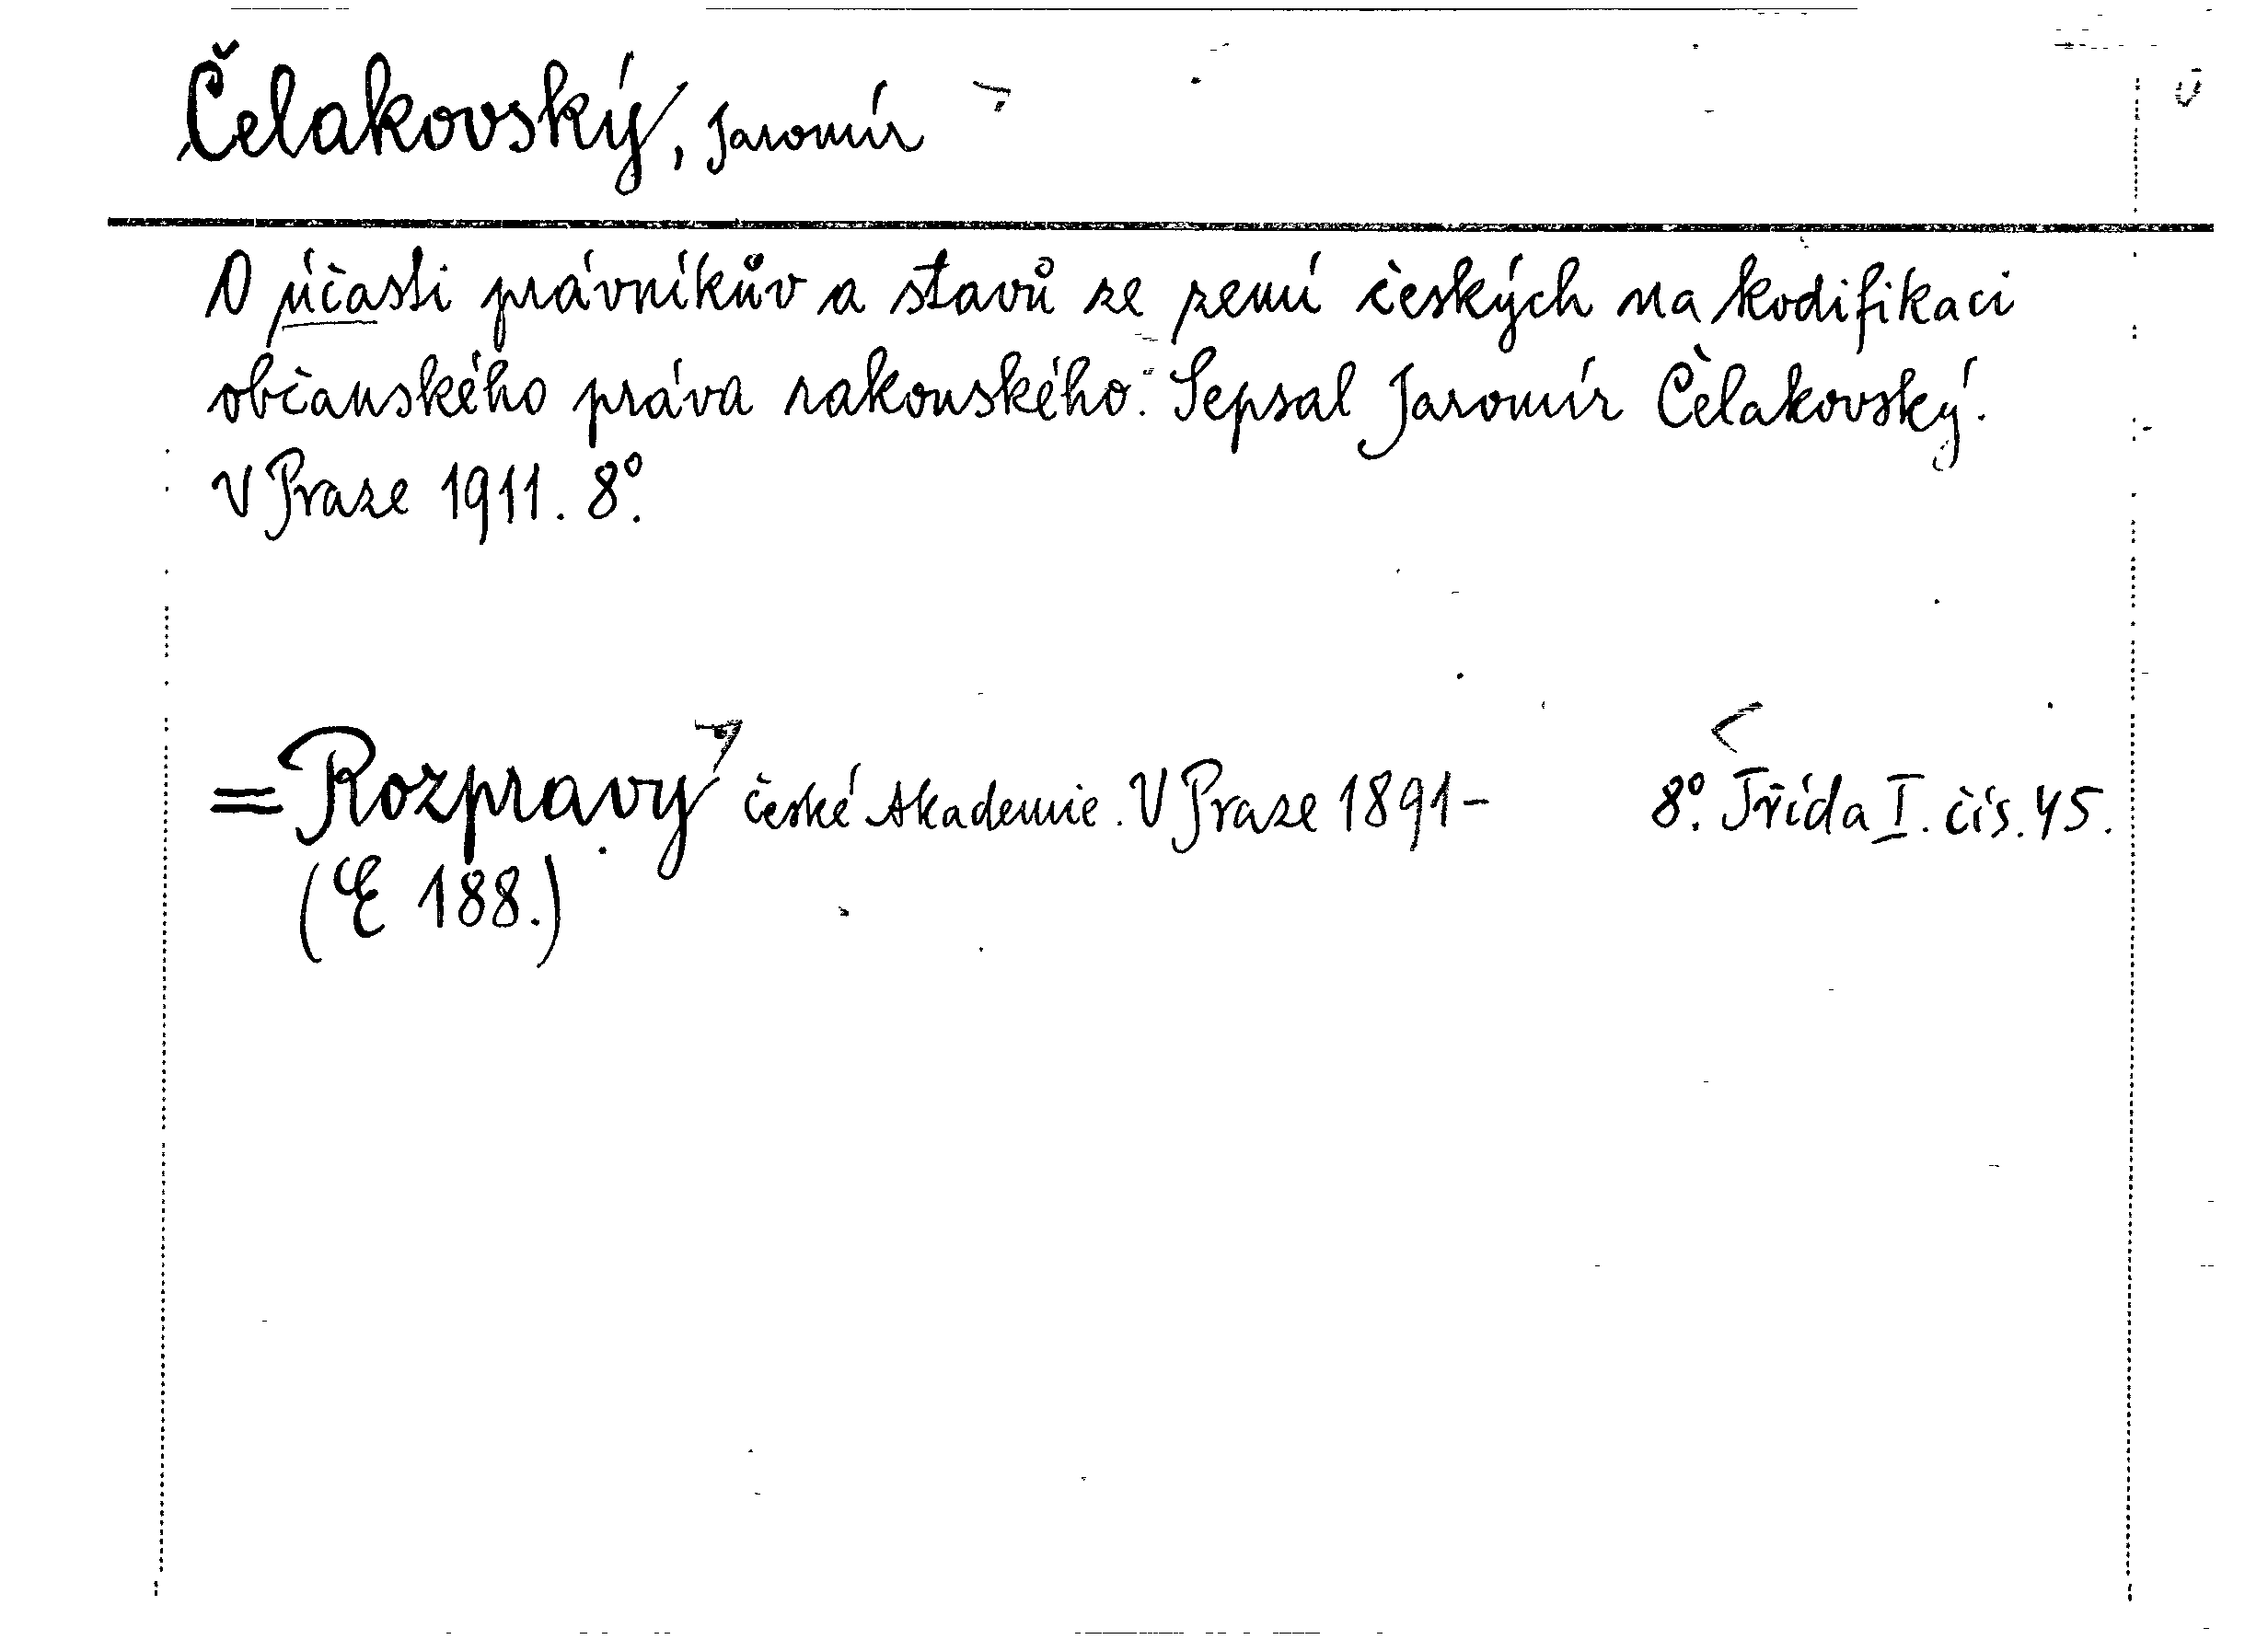 Čelakovský, Jaromír
O účasti právníkův a stavů ze zemí českých na kodifikaci
občanského práva rakouského. Sepsal Jaromír Čelakovský.
V Praze 1911. 8°.
=Rozpravy české Akademie. V Praze 1891- 8°. Třída I. čís. 45.
(E 188.)